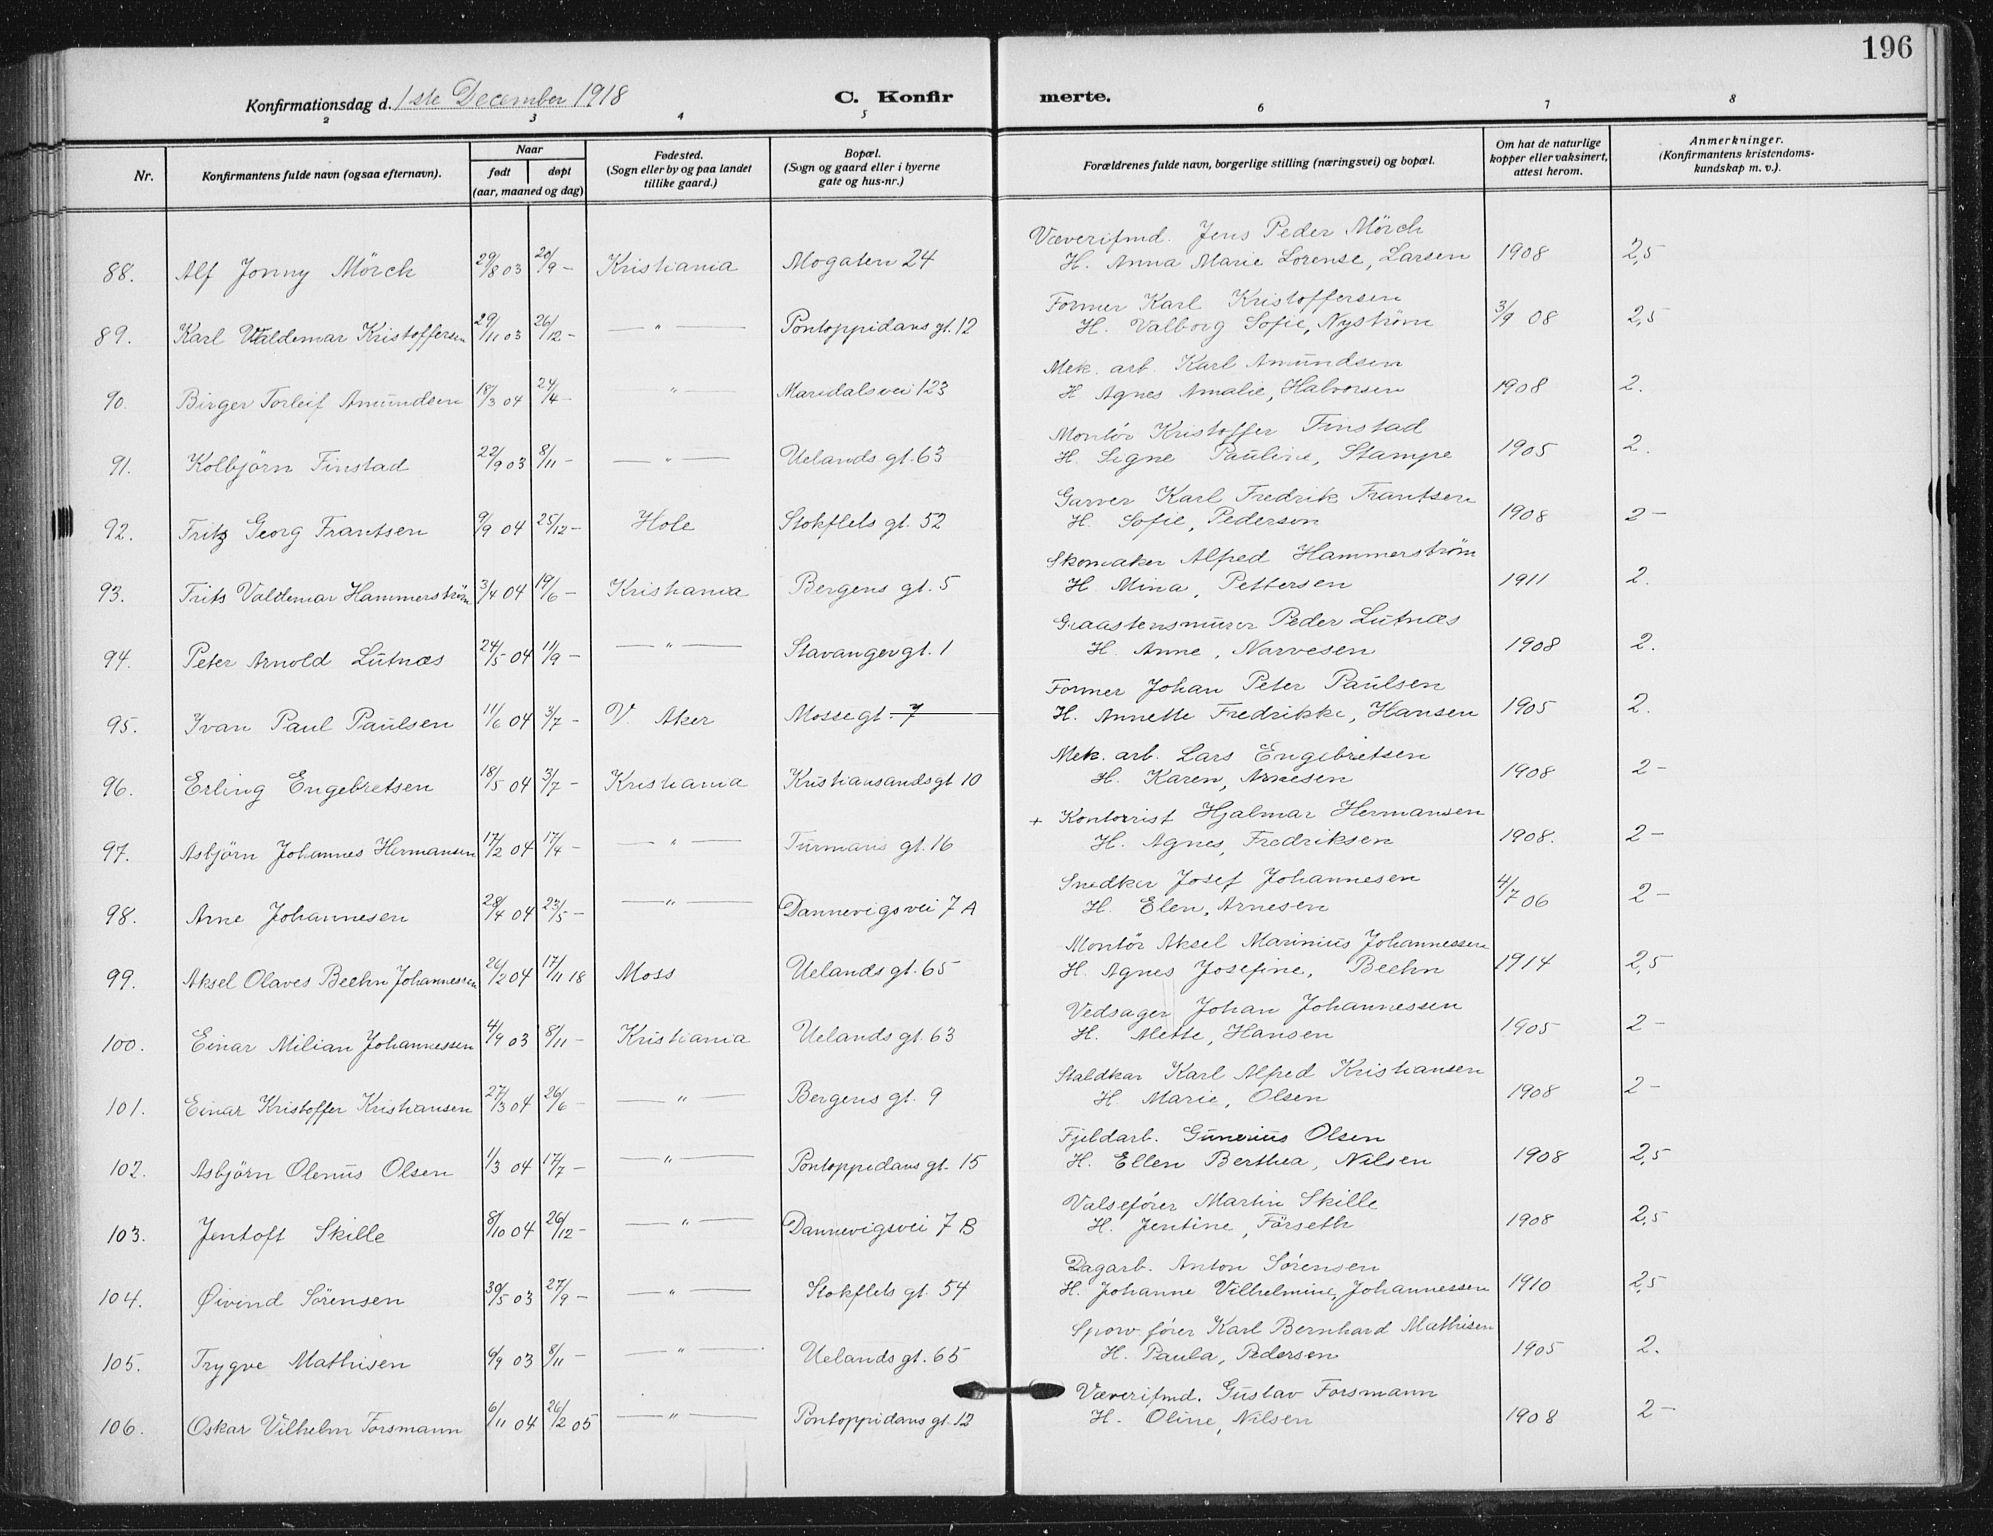 196
Konfirmationsdag d. 1ste December 1918 C. Konfirmerte.
2 3 4 5 6 7 8
Nr.
Konfirmantens fulde navn (ogsaa efternavn).
Naar
født døpt
(aar, maaned og dag)
Fødested.
(Sogn eller by og paa landet
tillike gaard.)
Bopæl.
(Sogn og gaard eller i byerne
gate og hus-nr.)
Forældrenes fulde navn, borgerlige stilling (næringsvei) og bopæl.
Om hat de naturlige
kopper eller vaksinert,
attest herom.
Anmerkninger.
(Konfirmantens kristendoms-
kundskap m. v.).
Væverifmd. Jens Peder Mörch
88. Alf Jonny Mörch 29/8 03 20/9 - Kristiania Mogaten 24 H. Anna Marie Lorense, Larsen 1908 2,5
Former Karl Kristoffersen
89. Karl Valdemar Kristoffersen 29/11 03 26/12 - — " — Pontoppidans gt. 12 H. Valborg Sofie, Nyström 3/9 08 2,5
Mek. arb. Karl Amundsen
90. Birger Torleif Amundsen 18/3 04 24/4 - — " — Maridalsvei 123 H. Agnes Amalie, Halvorsen 1908 2.
Montör Kristoffer Finstad
91. Kolbjörn Finstad 22/9 03 8/11 - — " — Uelands gt. 63 H. Signe Pauline, Stampe 1905 2.
Garver Karl Fredrik Frantsen
92. Fritz Georg Frantsen 9/9 04 25/12 - Hole Stokflets gt. 52 H. Sofie, Pederson 1908 2 -
Skomaker Alfred Hammerström
93. Frits Valdemar Hammerström 3/4 04 19/6 - Kristiania Bergens gt. 5 H. Mina, Pettersen 1911 2.
Graastensmurer Peder Lutnæs
94. Peter Arnold Lutnæs 24/5 04 11/9 - — " — Stavanger gt. 1 H. Anne, Narvesen 1908 2.
Former Johan Peter Paulsen
95. Ivan Paul Paulsen 11/6 04 3/7 - V. Aker Mosse gt. 7 H. Annette Fredrikke, Hansen 1905 2.
Mek. arb. Lars Engebretsen
96. Erling Engebretsen 18/5 04 3/7 - Kristiania Kristiansands gt 10 H. Karen, Arnesen 1908 2 -
+ Kontorrist Hjalmar Hermansen
97. Asbjörn Johannes Hermansen 17/2 04 17/4 - — " — Turmans gt. 16 H. Agnes, Fredriksen 1908. 2 -
Snedker Josef Johannesen
98. Arne Johannesen 28/4 04 23/5 - — " — Dannevigsvei 7 A H. Elen, Arnesen 4/7 06 2 -
Montör Aksel Marinius Johannessen
99. Aksel Olaves Beehn Johannessen 26/2 04 17/11 18 Moss Uelands gt. 65 H. Agnes Josefine, Beehn 1914 2,5
Vedsager Johan Johannessen
100. Einar Milian Johannessen 4/9 03 8/11 - Kristiania Uelands gt. 63 H. Mette, Hansen 1905 2 -
Staldkar Karl Alfred Kristiansen
101. Einar Kristoffer Kristiansen 27/3 04 26/6 - — " — Bergens gt. 9 H. Marie, Olsen 1908 2 -
Fjeldarb. Gunerius Olsen
102. Asbjörn Olenus Olsen 1/3 04 17/7 - — " — Pontoppidans gt. 15 H. Ellen Berthea, Nilsen 1908 2,5
Valsefører Martin Skille
103. Jentoft Skille 8/10 04 26/12 - — " — Dannevigsvei 7 B H. Jentine, Förseth 1908 2,5
Dagarb. Anton Sørensen
104. Øivind Sørensen 30/5 03 27/9 - — " — Stokflets gt. 54 H. Johanne Vilhelmine, Johannessen 1910 2,5
Sporv. fører Karl Bernhard Mathisen
105. Trygve Mathisen 6/9 03 8/11 - — " — Uelands gt. 65 H. Paula, Pedersen 1905 2.
Væverifmd. Gustav Forsmann
106. Oskar Vilhelm Forsmann 6/11 04 26/2 05 — " — Pontoppidans gt. 12 H. Oline, Nilsen 1908 2 -